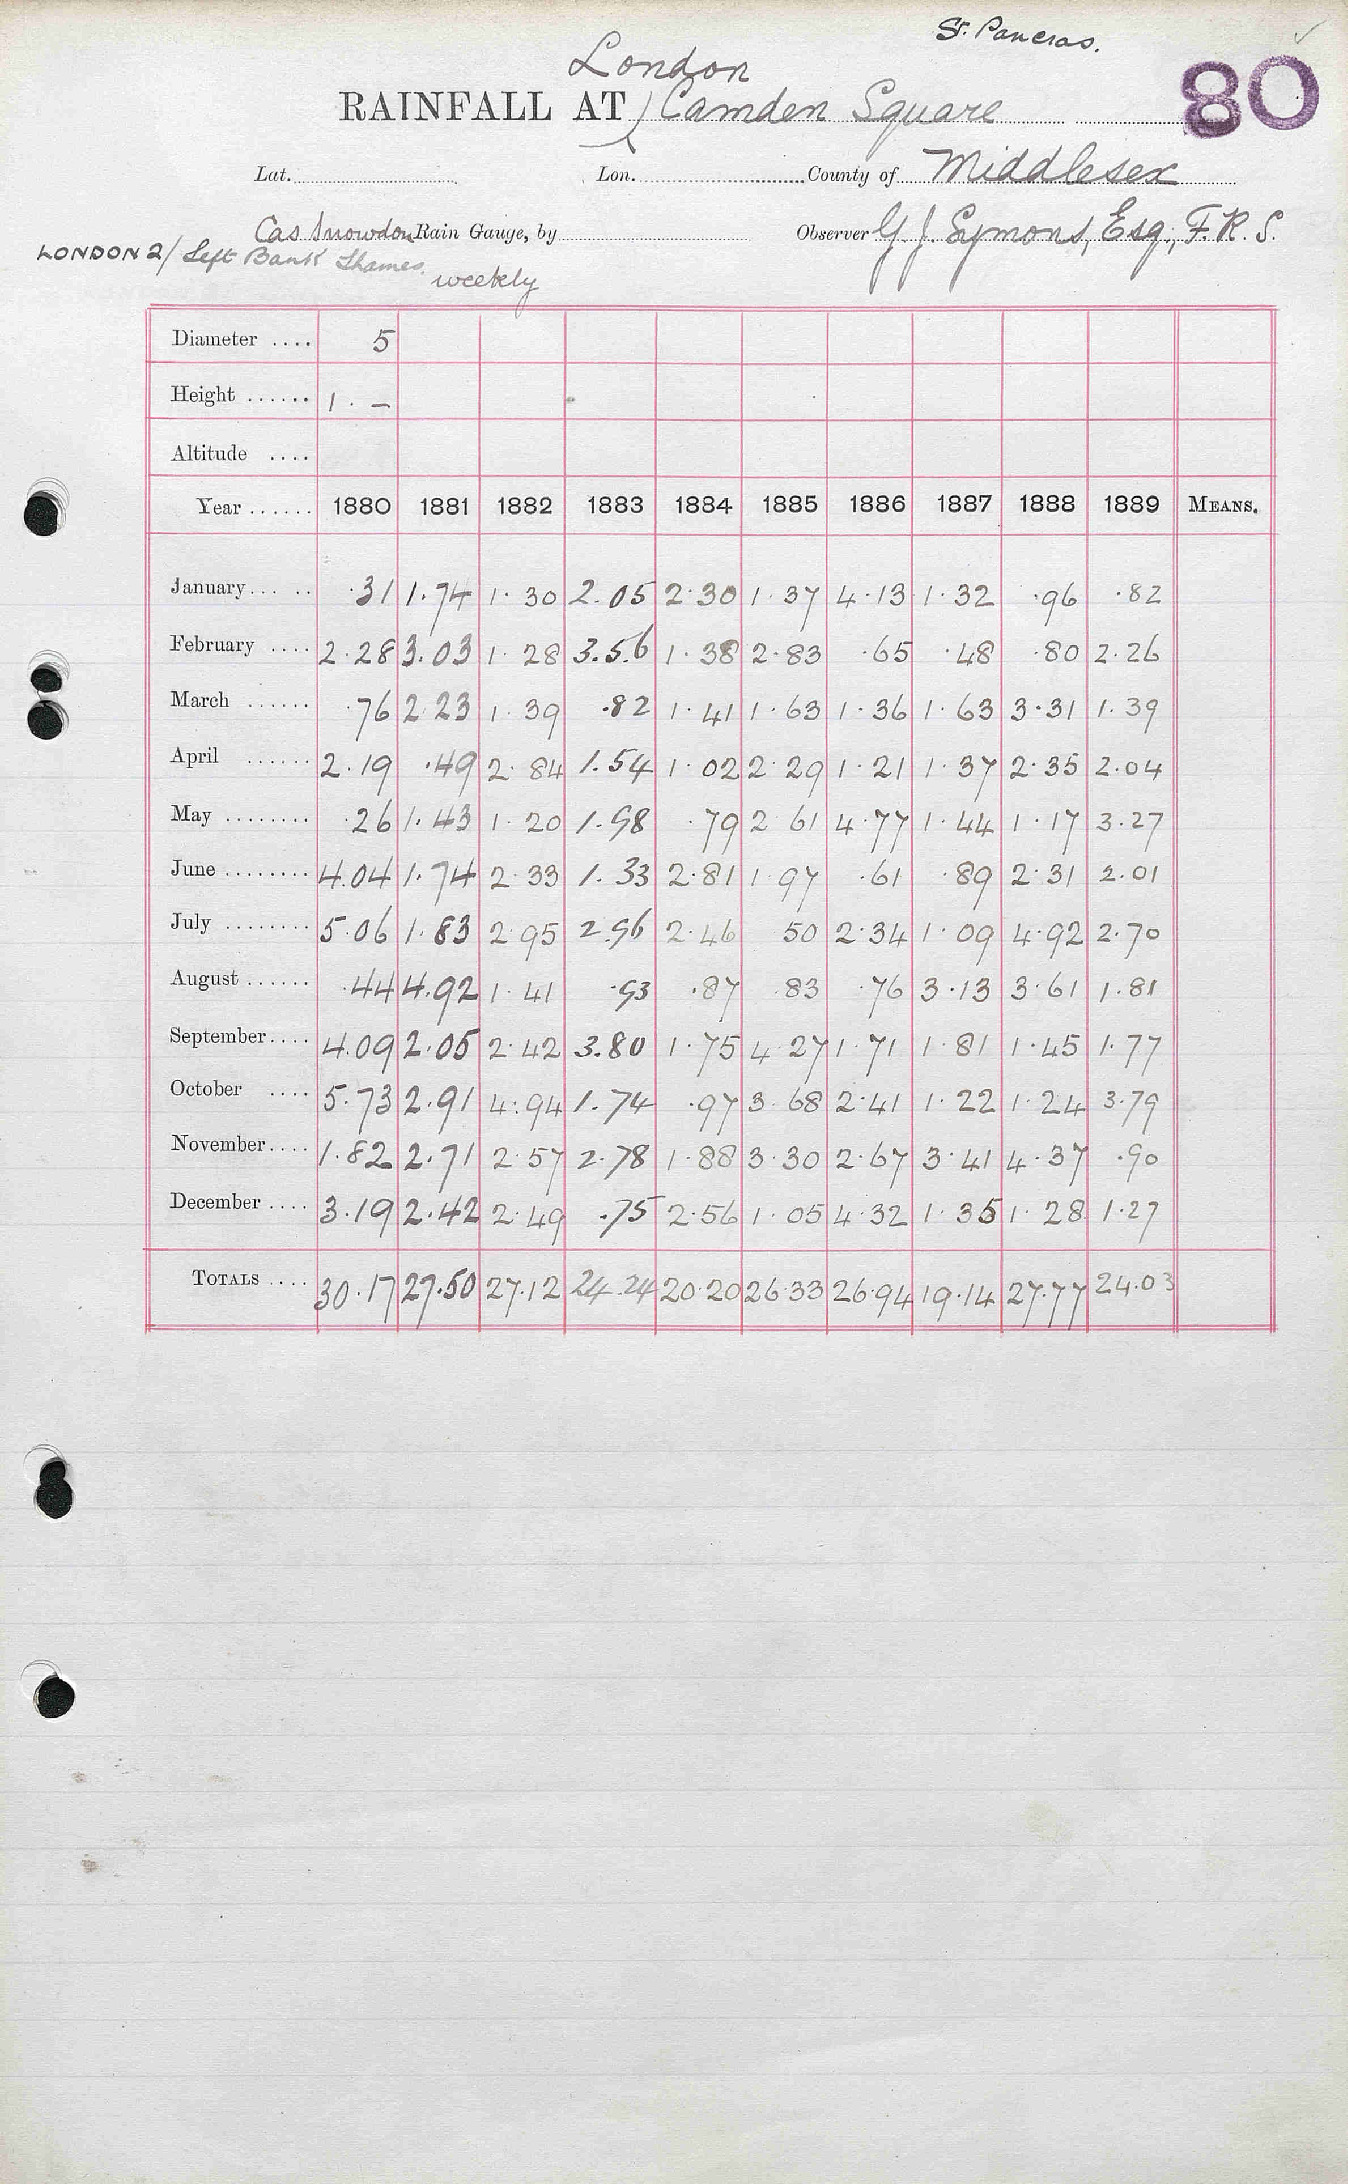 St. Pancras.
London
RAINFALL AT Camden Square
80
Lat. Lon. County of Middlesex
Cas Snowdon Rain Gauge, by Observer G. J. Symons, Esq., F.R.S.
LONDON 2/ Left Bank Thames
weekly
Diameter .... 5
Height ...... 1 . –
Altitude ....
Year ...... 1880 1881 1882 1883 1884 1885 1886 1887 1888 1889 MEANS.
January ... .. .31 1.74 1.30 2.05 2.30 1.37 4.13 1.32 .96 .82
February .... 2.28 3.03 1.28 3.56 1.38 2.83 .65 .48 .80 2.26
March ...... .76 2.23 1.39 .82 1.41 1.63 1.36 1.63 3.31 1.39
April ...... 2.19 .49 2.84 1.54 1.02 2.29 1.21 1.37 2.35 2.04
May ........ .26 1.43 1.20 1.98 .79 2.61 4.77 1.44 1.17 3.27
June ........ 4.04 1.74 2.33 1.33 2.81 1.97 .61 .89 2.31 2.01
July ........ 5.06 1.83 2.95 2.96 2.46 .50 2.34 1.09 4.92 2.70
August ...... .44 4.92 1.41 .93 .87 .83 .76 3.13 3.61 1.81
September.... 4.09 2.05 2.42 3.80 1.75 4.27 1.71 1.81 1.45 1.77
October .... 5.73 2.91 4.94 1.74 .97 3.68 2.41 1.22 1.24 3.79
November.... 1.82 2.71 2.57 2.78 1.88 3.30 2.67 3.41 4.37 .90
December .... 3.19 2.42 2.49 .75 2.56 1.05 4.32 1.35 1.28 1.27
TOTALS .... 30.17 27.50 27.12 24.24 20.20 26.33 26.94 19.14 27.77 24.03